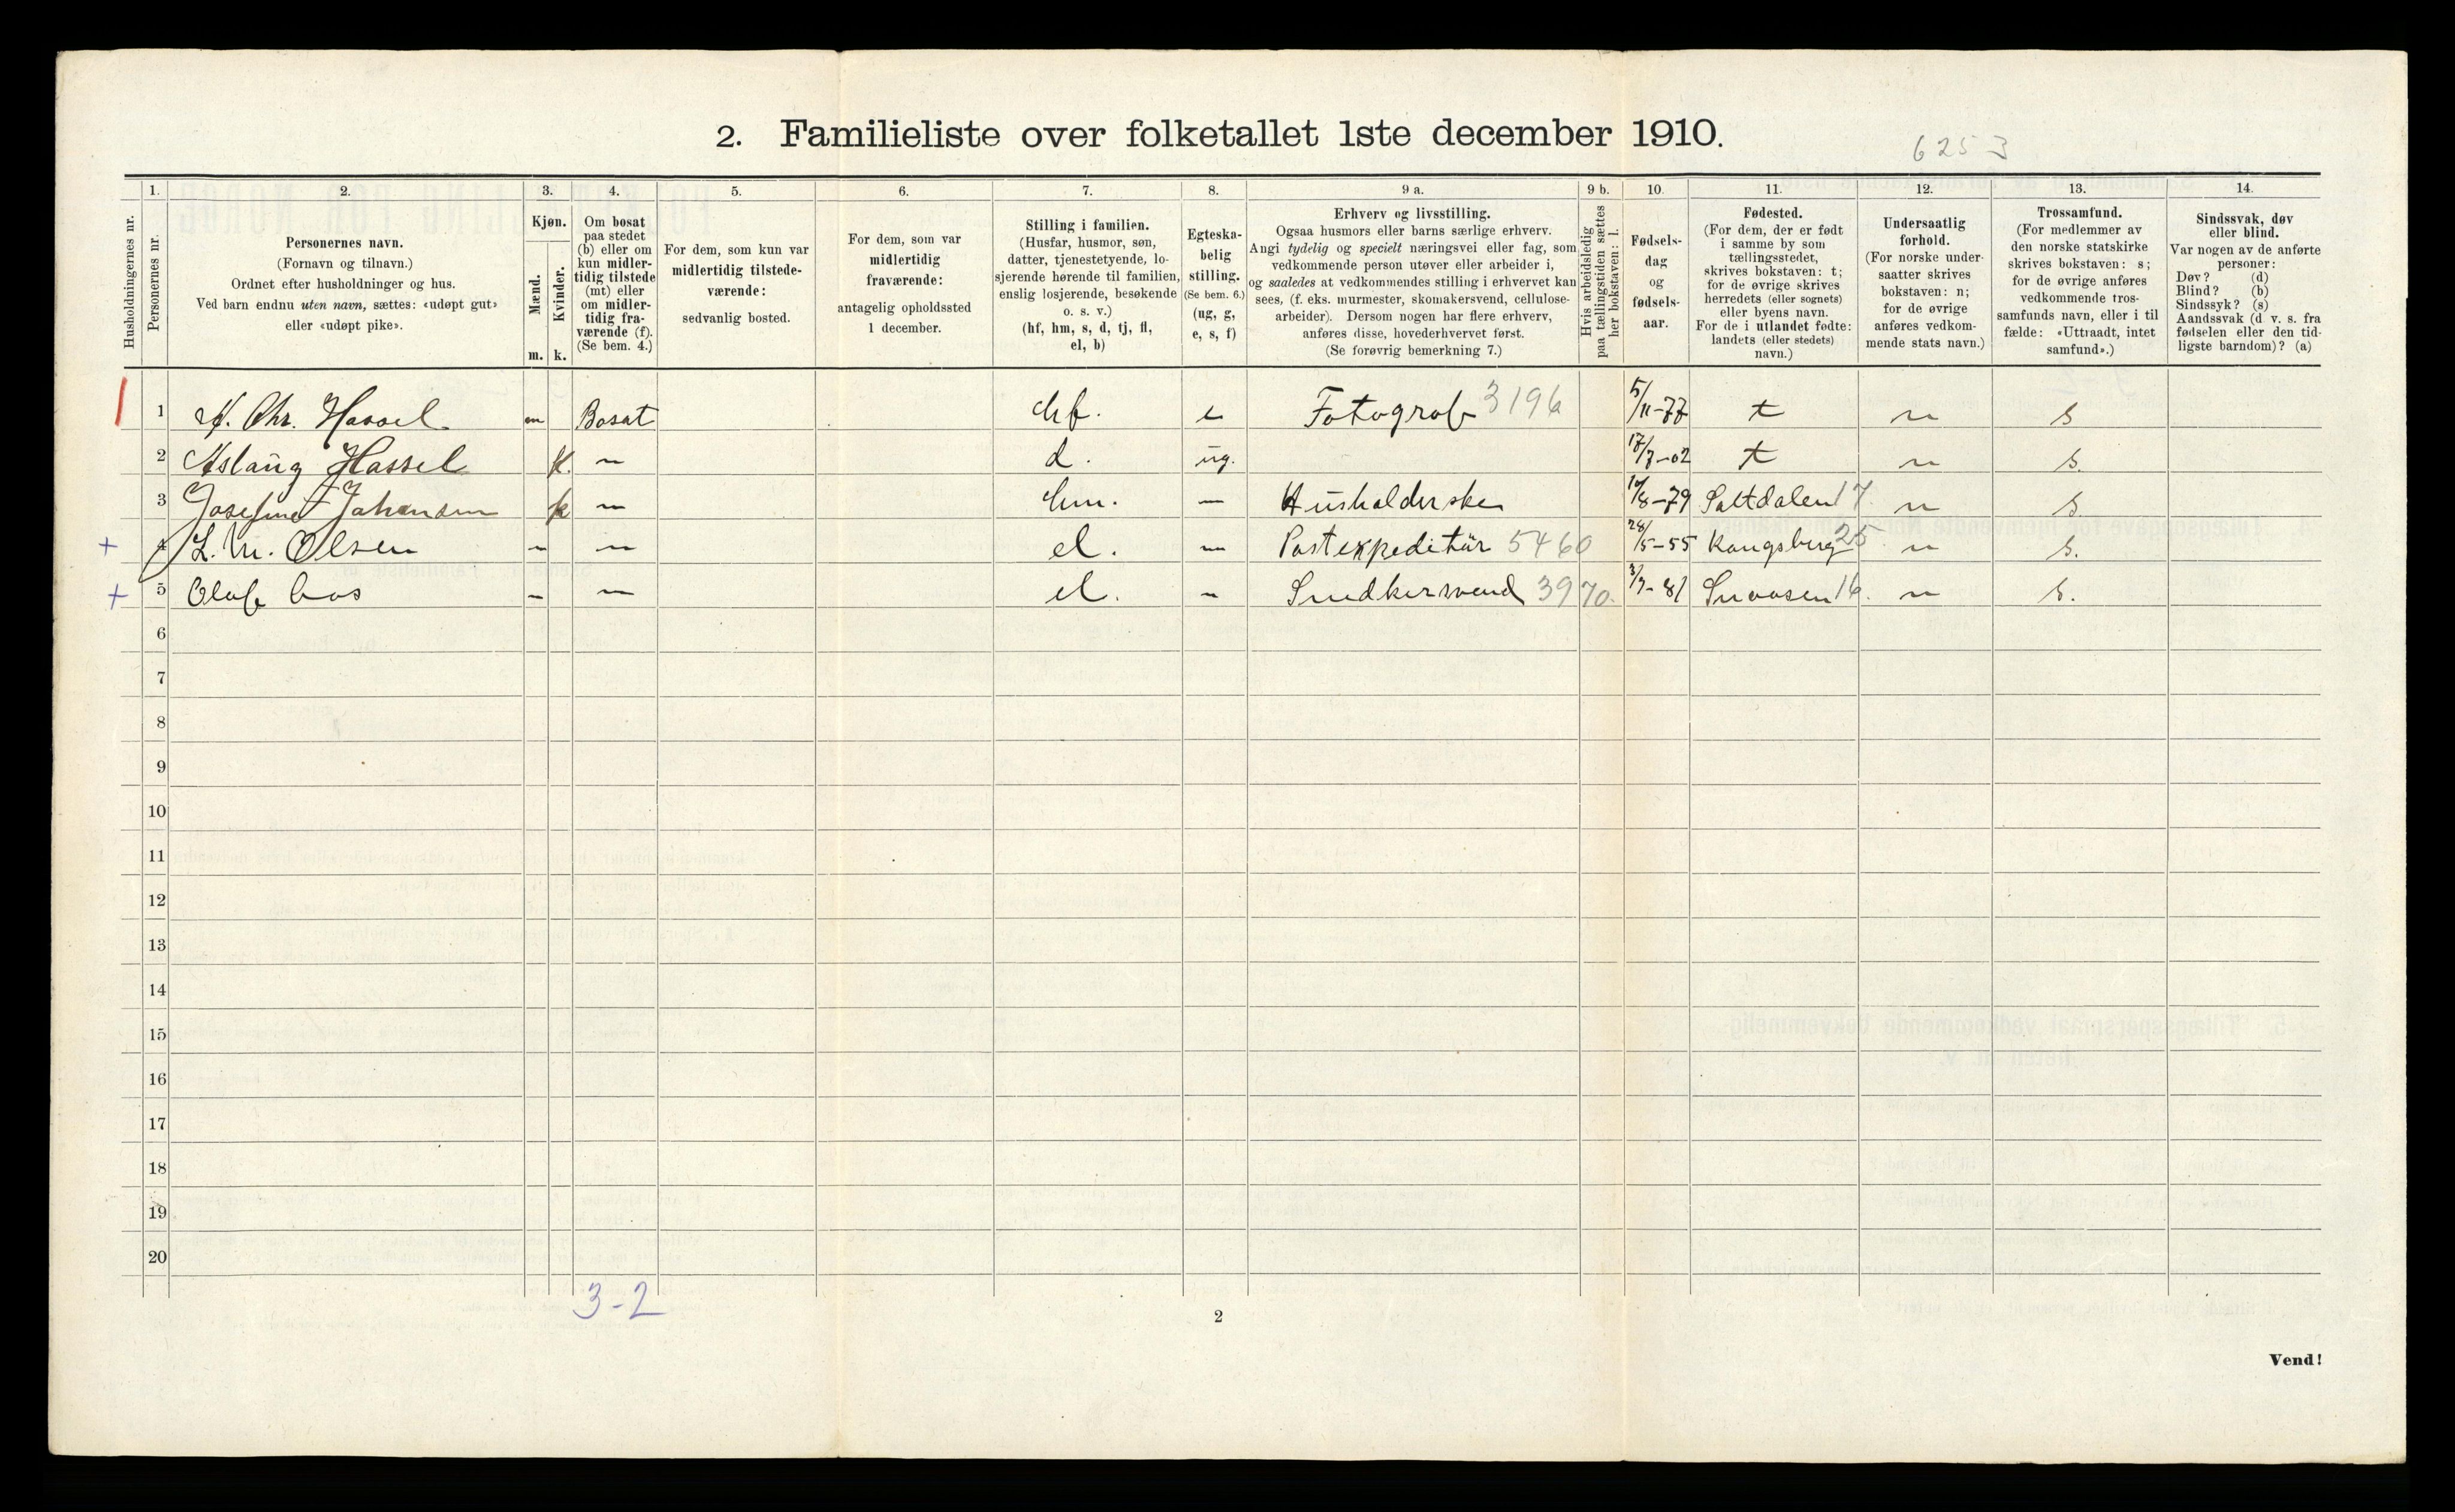 2. Familieliste over folketallet 1ste december 1910.
6253
1. 2. 3. 4. 5. 6. 7. 8. 9 a. 9 b. 10. 11. 12. 13. 14.
Husholdningernes nr.
Personernes nr.
Personernes navn.
(Fornavn og tilnavn.)
Ordnet efter husholdninger og hus.
Ved barn endnu uten navn, sættes: «udøpt gut»
eller «udøpt pike».
Kjøn.
Mænd.
Kvinder.
m. k.
Om bosat
paa stedet
(b) eller om
kun midler-
tidig tilstede
(mt) eller
om midler-
tidig fra-
værende (f).
(Se bem. 4.)
For dem, som kun var
midlertidig tilstede-
værende:
sedvanlig bosted.
For dem, som var
midlertidig
fraværende:
antagelig opholdssted
1 december.
Stilling i familien.
(Husfar, husmor, søn,
datter, tjenestetyende, lo-
sjerende hørende til familien,
enslig losjerende, besøkende
o. s. v.)
(hf, hm, s, d, tj, fl,
el, b)
Egteska-
belig
stilling.
(Se bem. 6.)
(ug, g,
e, s, f)
Erhverv og livsstilling.
Ogsaa husmors eller barns særlige erhverv.
Angi tydelig og specielt næringsvei eller fag, som
vedkommende person utøver eller arbeider i,
og saaledes at vedkommendes stilling i erhvervet kan
sees, (f. eks. murmester, skomakersvend, cellulose-
arbeider). Dersom nogen har flere erhverv,
anføres disse, hovederhvervet først.
(Se forøvrig bemerkning 7.)
Hvis arbeidsledig
paa tællingstiden sættes
her bokstaven: l.
Fødsels-
dag
og
fødsels-
aar.
Fødested.
(For dem, der er født
i samme by som
tællingsstedet,
skrives bokstaven: t;
for de øvrige skrives
herredets (eller sognets)
eller byens navn.
For de i utlandet fødte:
landets (eller stedets)
navn.)
Undersaatlig
forhold.
(For norske under-
saatter skrives
bokstaven: n;
for de øvrige
anføres vedkom-
mende stats navn.)
Trossamfund.
(For medlemmer av
den norske statskirke
skrives bokstaven: s;
for de øvrige anføres
vedkommende tros-
samfunds navn, eller i til-
fælde: «Uttraadt, intet
samfund».)
Sindssvak, døv
eller blind.
Var nogen av de anførte
personer:
Døv? (d)
Blind? (b)
Sindssyk? (s)
Aandssvak (d. v. s. fra
fødselen eller den tid-
ligste barndom)? (a)
1 Chr. Hassel m Bosat hf. e Fotograf 3196 5/11-77 t n s
2 Aslaug Hassel k. — d. ug. 17/7-02 t n s.
3 Josefine Johansen k — hm. — Husholderske 14/8-79 Saltdalen 17. n s
+ 4 L. M. Olsen — — el. — Postexpeditør 5460 28/5-55 Kongsberg 25 n s.
+ 5 Olaf — — el. — Snedkersvend 3970. 3/7-81 Snaasen 16. n s.
6
7
8
9
10
11
12
13
14
15
16
17
18
19
20
3-2
2
Vend!